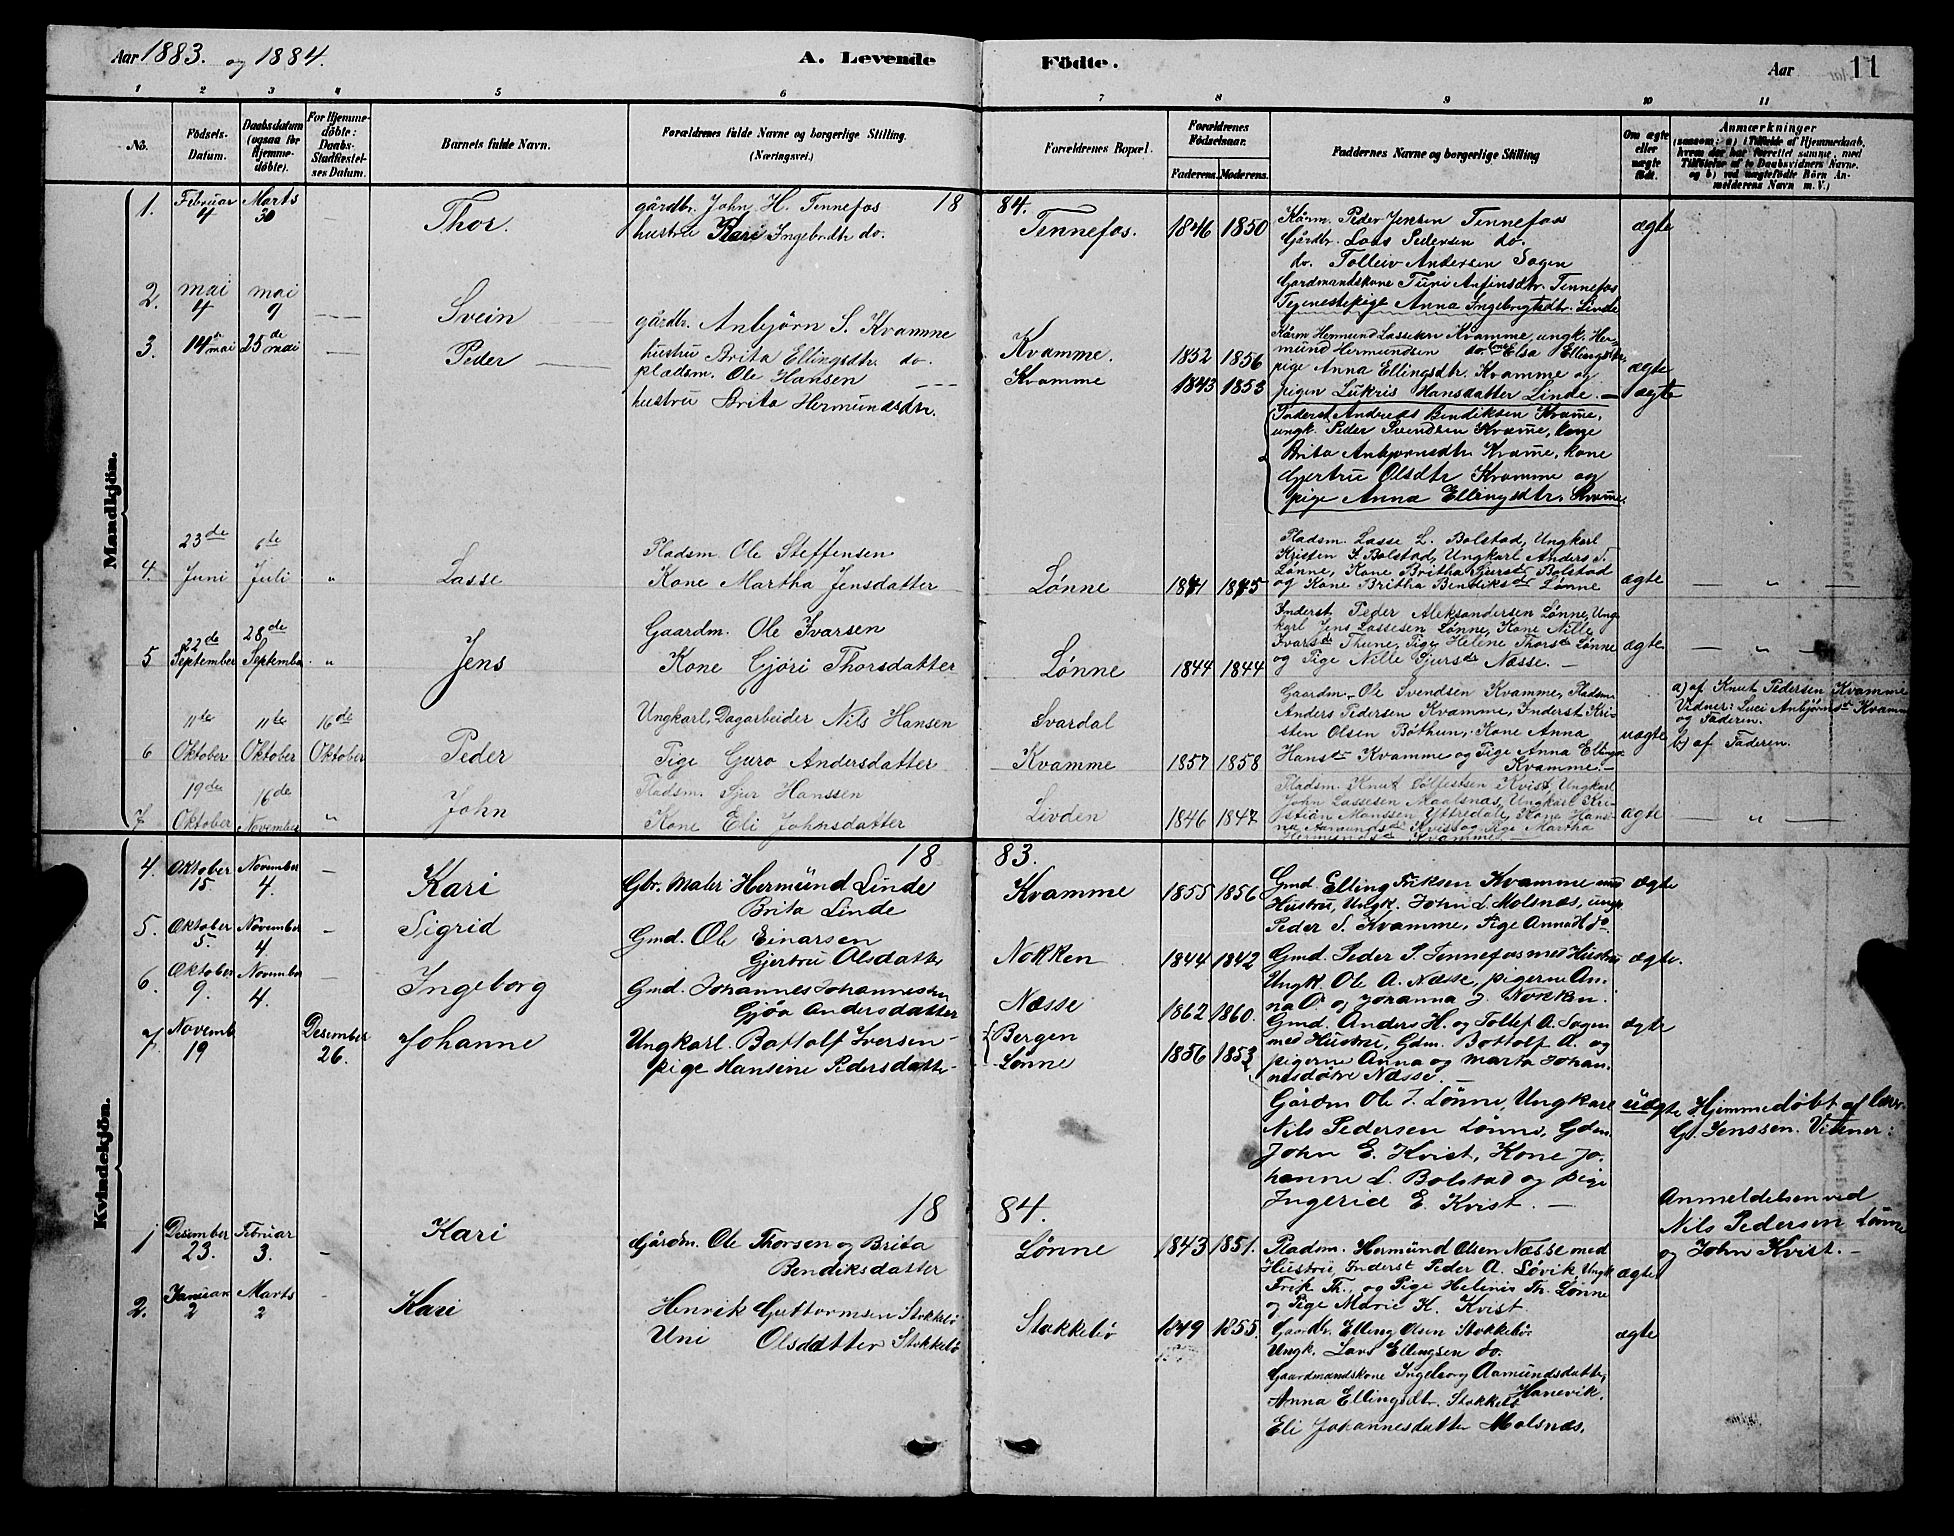 Aar 1883. og 1884. A. Levende Födte. Aar 11
1 2 3 4 5 6 7 8 9 10 11
No. Födsels-Datum. Daabsdatum (ogsaa for Hjemme-döbte). For Hjemme-döbte: Daabs-Stadfæstel-ses Datum. Barnets fulde Navn. Forældrenes fulde Navne og borgerlige Stilling. (Næringsvei.) Forældrenes Bopæl. Forældrenes Födselsaar. Faderens. Moderens. Faddernes Navne og borgerlige Stilling Om ægte eller uægte födt. Anmærkninger (saasom: a) i Tilfælde af Hjemmedaab, hvem der har forrettet samme, med Tilföielse af to Daabsvidners Navne, og b) ved uægtefödte Börn An-melderens Navn m. V.)
Mandkjön.
1. Februar 4 Marts 30 — Thor. gårdbr. John H. Tennefos 18 84.
hustru Kari Ingebrdtr do. Tennefos. 1846 1850 Kårm. Peder Jensen Tennefoss ægte
Gårdbr. Lars Pedersen do.
do. Tolleiv Andersen Sogen
Gardmandskone Turi Anfinsdtr. Tennefos
Tejenestepige Anna Ingebrigtsdtr. Linde
2. mai 4 mai 9 — Svein gårdbr. Anbjörn S. Kvamme
hustru Brita Ellingsdtr. do. Kvamme. 1852 1856 Kårm Hermund Lassesen Kvamme, ungk. Her-
mund Hermundsen do. Kone Elsa Ellingsdtr.
pige Anna Ellingsdtr. Kvamme og ægte
pigen Lukris Hansdatter Linde. —
3. 14de mai 25de mai — Peder pladsm. Ole Hansen Kvamme 1843 1853 ægte
hustru Brita Hermundsdtr.
Inderst Andreas Bendiksen Kvam̄e,
ungk. Peder Svendsen Kvam̄e, kone
Brita Anbjørnsdtr. Kvam̄e, kone
Gjertru Olsdtr Kvamme og
pige Anna Ellingsdtr. Kvam̄e.
4. 23de Juni 6te Juli " Lasse Pladsm. Ole Steffensen
Kone Martha Jensdatter Lønne 1841 1845 Pladsm. Lasse L. Bolstad, Ungkarl
Kristen S. Bolstad, Ungkarl Anders S.
Lønne, Kone Britha Sjursdr Bolstad
og Kone Britha Bendiksdr Lønne ægte — " —
5 22de September 28de September " Jens Gaardm. Ole Ivarsen
Kone Gjöri Thorsdatter Lønne 1844 1844 Inderst Peder Aleksandersen Lønne, Ung-
karl Jens Lassesen Lønne, Kone Nille
Ivarsdr Thune, Pige Helene Thorsdr Lønne
og Pige Nille Sjursdr Næsse. — ægte — " —
6 11te Oktober 11te Oktober 16de Oktober Peder Ungkarl, Dagarbeider Nils Hansen Svardal
Pige Guro Andersdatter Kvamme 1857 1858 Gaardm. Ole Svendsen Kvamme, Pladsm
Anders Pedersen Kvamme, Inderst Kri-
sten Olsen Bøthun, Kone Anna
Hansdr Kvamme og Pige Anna Ellingsdr
Kvamme. — uægte a) af Knut Pedersen Kvamme
Vidner: Luci Anbjørnsdr Kvamme
og Faderen.
b) af Faderen.
7 19de Oktober 16de November " John Pladsm. Sjur Hanssen
Kone Eli Johnsdatter Livden 1846 1847 Pladsm. Knut Sølfestsen Kvist, Ungkarl
John Lassesen Maalsnæs, Ungkarl Kri-
stian Monssen Yttredale, Kone Hansi-
na Aamundsdr Kvist og Pige Martha
Hermundsdr Kvamme. — ægte — " —
Kvindekjön.
18 83.
4. Oktober 15 November 4. — Kari Gbr. Maler Hermund Linde
Brita Linde Kvamme 1855 1856 Gmd. Elling Eriksen Kvamme med
Hustru, Ungk. John L. Molsnæs, ungk
Peder S. Kvamme, Pige Anna H do. ægte
5. Oktober 5. November 4 — Sigrid Gmd. Ole Einarsen
Gjertru Olsdatter Nokken 1844 1842 Gmd. Peder P. Tennefos med Hustru
Ungk. Ole A. Næsse, pigerne An-
na O. og Johanna J. Nokken. ægte.
6. Oktober 9. November 4. — Ingeborg Gmd. Johannes Johannessen
Gjøa Andersdatter Næsse 1862 1860. Gmd. Anders H. og Tollef A. Sogen
med Hustru, Gdm. Bottolf A. og
pigerne Anna og Marta Johan-
nesdøtre Næsse. — ægte
7 Novemb 19 Desember 26. Johanne Ungkarl. Bottolf Iversen Bergen
pige Hansine Pedersdatter Lønne 1856 1853 Gårdm Ole J. Lønne, Ungkarl
Nils Pedersen Lønne, Gdm.
John E. Kvist, Kone Jo-
hanne L. Bolstad og pige
Ingerid E. Kvist. — uægte Hjemmedøbt af
G. Jenssen. Vidner:
Anmeldelsen ved
Nils Pedersen Lønne
og John Kvist. —
18 84.
1 Desember 23. Februar 3. — Kari Gjårdm. Ole Thorsen og Brita
Bendiksdatter Lønne 1843 1851. Pladsm. Hermund Olsen Næsse med
Hustru, Inderst Peder A. Løvik Ungk
Erik Th., og Pige Heline Th. Lønne
og Pige Marie K. Kvist ægte
2. Januar 2 Marts 2 — Kari Henrik Guttormsen Stokkebö
Uni Olsdatter Stokkebö Stokkebö 1849 1855. Gaardbr. Elling Olsen Stokkebö
Ungk. Lars Ellingsen do.
Gaardmandskone Ingeborg Aamundsdatter,
Hanevik.
Anna Ellingsdtr. Stokkebö
Eli Johannesdatter Molsnæs. ægte